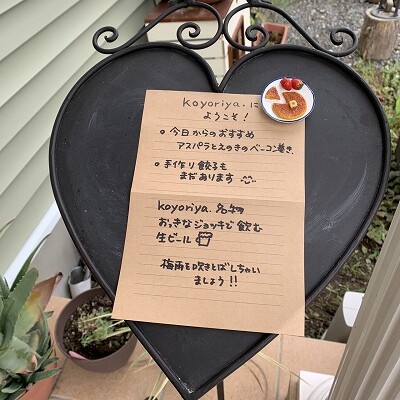 koyoriya.に
ようこそ！
○ 今日からのおすすめ
アスパラとえのきのベーコン巻き.
○ 手作り餃子も
まだあります
koyoriya.名物
おっきなジョッキで飲む
生ビール
梅雨を吹きとばしちゃい
ましょう!!